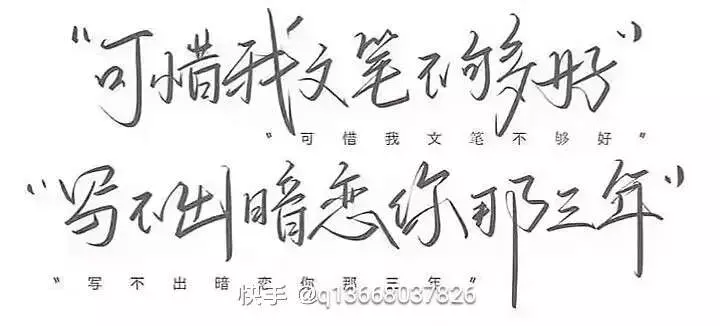 “可惜我文笔不够好”
“可惜我文笔不够好”
“写不出暗恋你那三年”
“写不出暗恋你那三年”
快手 @q13668037826